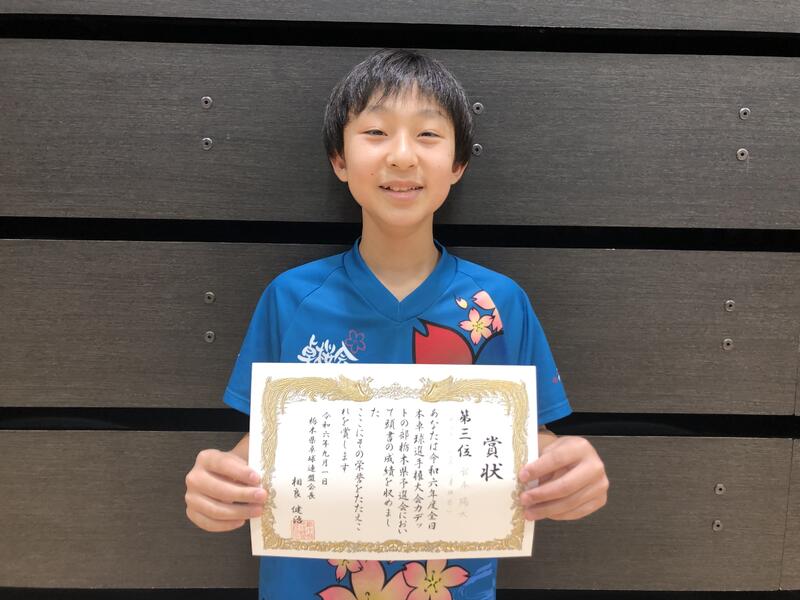 卓桜会
賞状
第三位
あなたは令和六年度全日
本卓球選手権大会カデッ
トの部栃木県予選会におい
て頭書の成績を収めまし
た
ここにその栄誉をたたえこ
れを賞します
令和六年九月一日
栃木県卓球連盟会長
相良健治